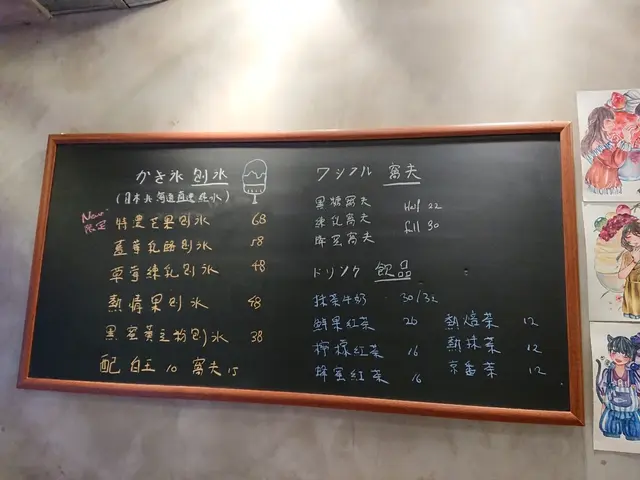 かき氷 刨氷
(日本北海道直送純水)
New
限定
特濃芒果刨氷 68
藍莓乳酪刨氷 58
草莓練乳刨氷 48
熱情果刨氷 48
黑蜜黃豆粉刨氷 38
配 白玉 10 窩夫 15
ワッフル 窩夫
黑糖窩夫
練乳窩夫
蜂蜜窩夫
Half 22
full 30
ドリンク 飲品
抹茶牛奶 30/32
鮮果紅茶 20
檸檬紅茶 16
蜂蜜紅茶 16
熱焙茶 12
熱抹茶 12
京番茶 12